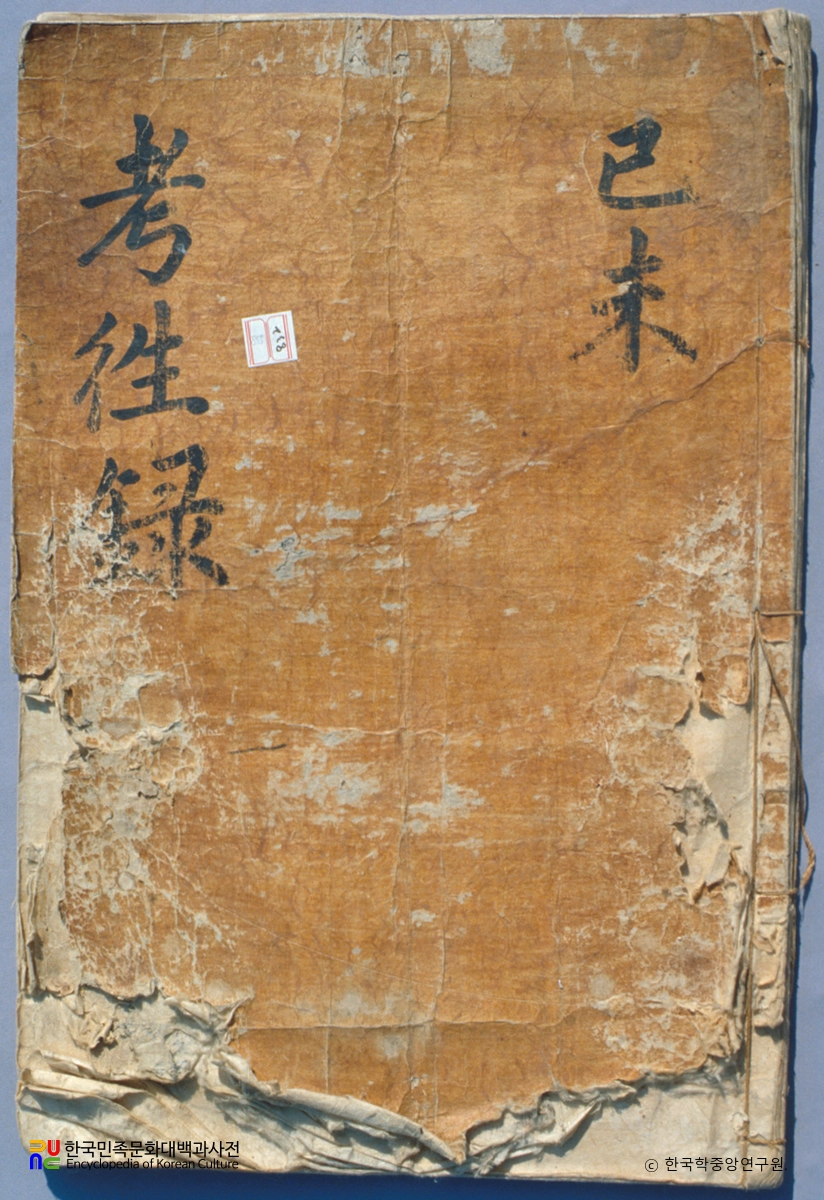 己未
考徃録
한국민족문화대백과사전
Encyclopedia of Korean Culture
© 한국학중앙연구원.